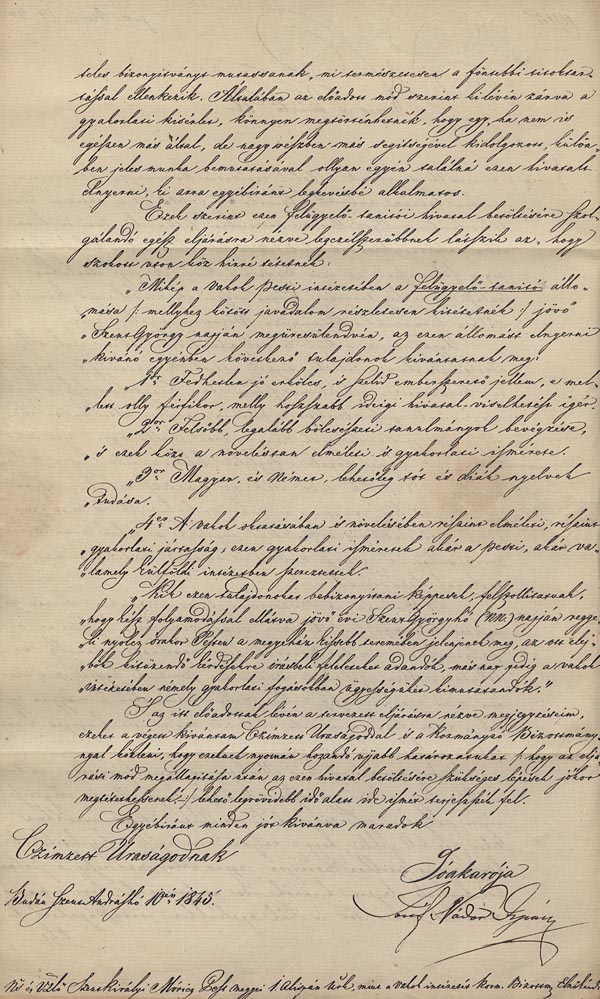 teles bizonyitványt mutassanak, mi természetesen a föntebbi titoktar-
tással ellenkezik. Általában az előadott mód szerint kilévén zárva a
gyakorlati kisérlet, könnyen megtörténhetnék, hogy egy, ha nem is
egészen más által, de nagy részben más segitségével kidolgozott, külön-
ben jeles munka bemutatásával ollyan egyén találná ezen hivatalt
elnyerni, ki arra egyébiránt legkevésbé alkalmatos.
Ezek szerint ezen felügyelő-tanitói hivatal betöltésére szol-
gálandó egész eljárásra nézve legczélszerübbnek látszik az, hogy
szokott uton köz hirré tétetnék:
„Mikép a vakok pesti intézetében a felügyelő-tanitó állo-
„mása /: mellyhez kötött javadalom részletesen kitétetnék :/ jövő
„Szent György napján megüresülendvén, az ezen állomást elnyerni
„kivánó egyénben következő tulajdonok kivántatnak meg:
„1ör Fedhetlen jó erkölcs, 's szelid emberszerető jellem, e mel-
lett olly férfikor, melly hosszabb ideigi hivatal-viselhetést igér.
„2or Felsőbb, legalább bölcsészeti tanulmányok bevégzése,
„'s ezek közt a növeléstan elméleti 's gyakorlati ismérete.
„3or Magyar, és Német, lehetőleg tót és diák nyelvek
„tudása.
„4er A vakok oktatásában 's növelésében részint elméleti, részint
„gyakorlati jártasság; ezen gyakorlati isméretek akár a pesti, akár va-
„lamely külföldi intézetben szereztettek.
„Kik ezen tulajdonokat bebizonyitani képesek, felszólittatnak,
„hogy kész folyamodással ellátva jövő évi Szent Györgyhó (NN.) napján regge-
„li nyolcz órakor Pesten a megyeház kisebb teremében jelenjenek meg, az ott elé-
„jök kitüzendő kérdésekre irásbeli feleleteket adandók, más nap pedig a vakok
„intézetében némely gyakorlati fogásokban ügyességüket kimutatandók."
'S az itt előadottak lévén a tervezett eljárásra nézve megjegyzéseim,
ezeket a végett kivántam Czimzett Uraságoddal 's a kormányzó Bizottmány-
nyal közleni, hogy ezeknek nyomán hozandó ujabb határozatukat /: hogy az eljá-
rási mód megállapitása után az ezen hivatal betöltésére szükséges lépések jókor
megtétethessenek :/ lehető legrövidebb idő alatt ide ismér terjesszék fel.
Egyébiránt minden jót kivánva maradok
Czimzett Uraságodnak
Jóakarója
Budán Szent Andráshó 10én 1845.
József Nádor
Szentkirályi Móricz Pest megyei 1. Alispán Urk, mint a vakok intézetét korm. Bizottm. Elnökének